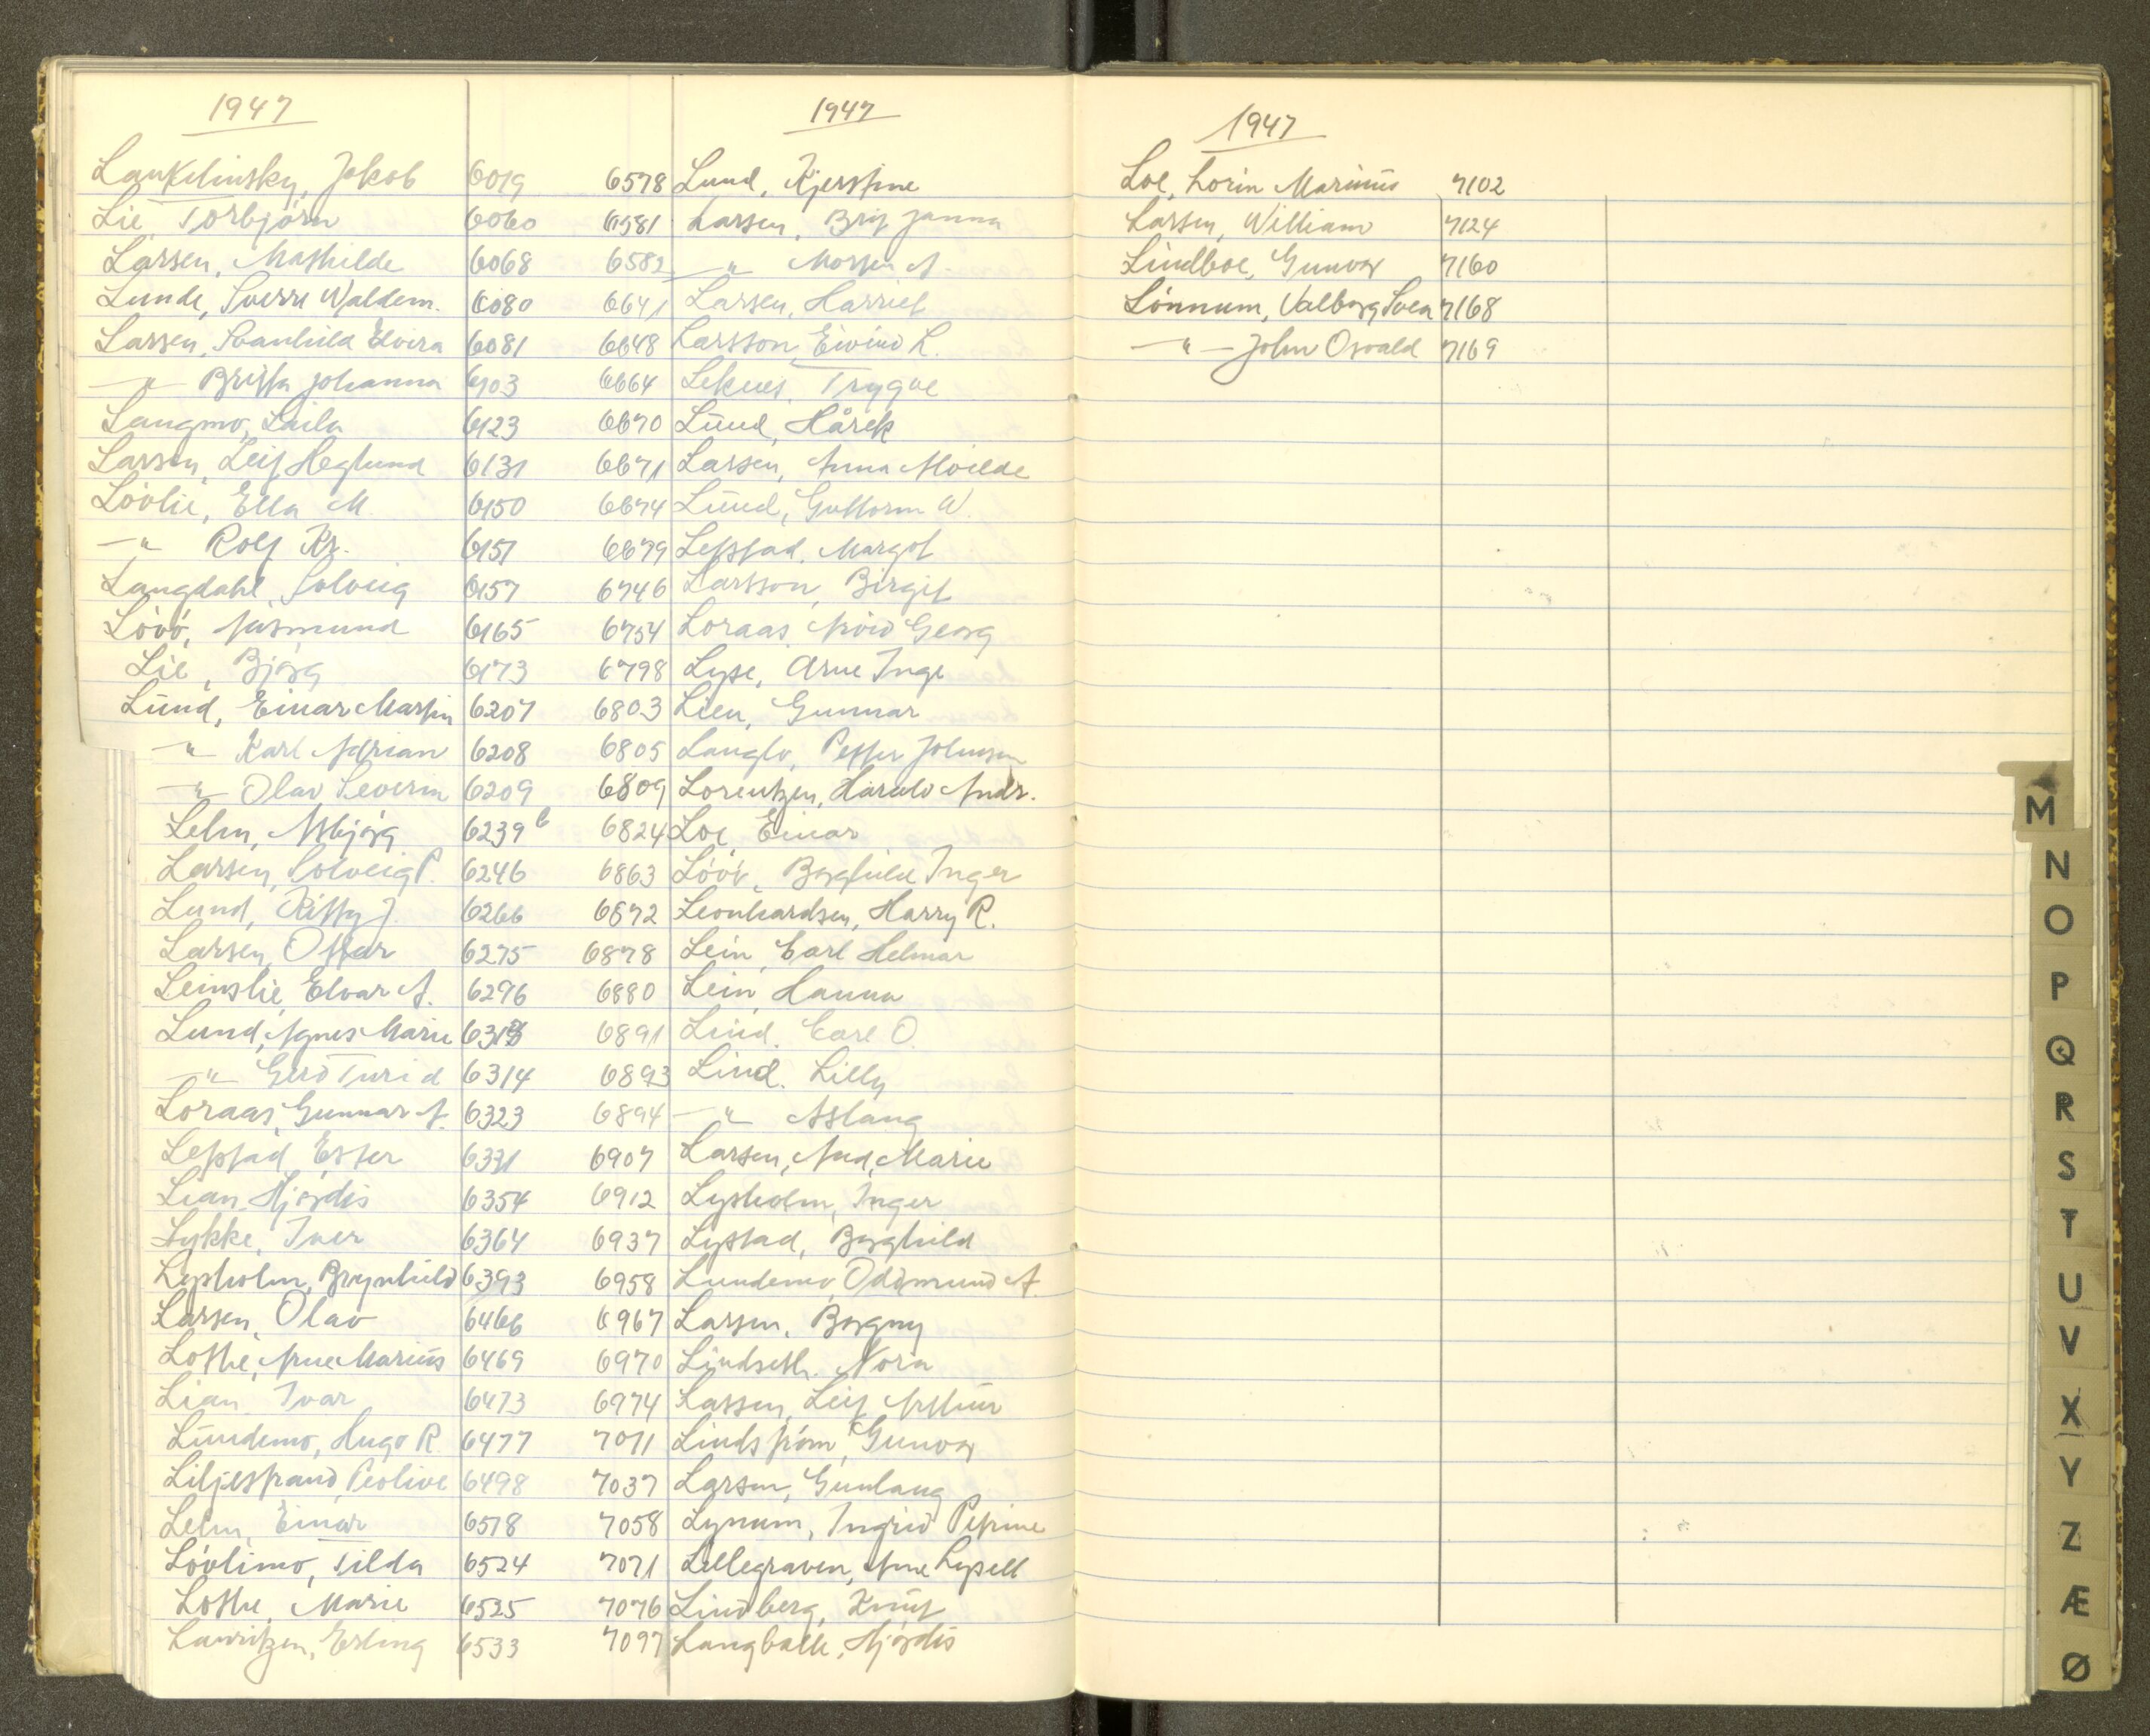 1947
Lankelinsky, Jakob 6019
Lie, Torbjørn 6060
Larsen, Mathilde 6068
Lunde, Sverre Waldem. 6080
Larsen, Svanhild Elvira 6081
—"— Britta Johanna 6103
Langmo, Laila 6123
Larsen, Leif Heglund 6131
Lövlie, Ella M. 6150
—"— Rolf Kr. 6151
Langdahl, Solveig 6157
Lövö, Aasmund 6165
Lie, Bjørg 6173
Lund, Einar Martin 6207
—"— Karl Adrian 6208
—"— Olav Severin 6209
Lehn, Asbjørg 6239 b
Larsen, Solveig P. 6246
Lund, Kitty J. 6266
Larsen, Ottar 6275
Leinslie, Elvar A. 6296
Lund, Agnes Marie 6313
—"— Gerd Turid 6314
Loraas, Gunnar A. 6323
Leistad, Ester 6331
Lian, Hjørdis 6354
Lykke, Iver 6364
Lysholm, Brynhild 6393
Larsen, Olav 6466
Lothe, Arne Marius 6469
Lian, Ivar 6473
Lundemo, Hugo R. 6477
Liljestrand, Peolive 6498
Lehn, Einar 6518
Lövlimo, Tilda 6524
Lothe, Marie 6525
Lauritzen, Erling 6533
1947
6578 Lund, Kjerstine
6581 Larsen, Brit Janna
6582 —"— Morten A.
6641 Larsen, Harriet
6648 Larsson, Eivind L.
6664 Leknes, Trygve
6670 Lund, Hårek
6671 Larsen, Anna Alvilde
6674 Lund, Guttorm W.
6679 Leistad, Margot
6746 Larsson, Birgit
6754 Loraas, Arvid Georg
6798 Lyse, Arne Inge
6803 Lien, Gunnar
6805 Langlo, Petter Johnsen
6809 Lorentzen, Harald Andr.
6824 Loe, Einar
6863 Löök, Borghild Inger
6872 Leonhardsen, Harry R.
6878 Lein, Carl Helmar
6880 Lein, Hanna
6891 Lind, Carl O.
6893 Lind, Lilly
6894 —"— Aslaug
6907 Larsen, Aud, Marie
6912 Lysholm, Inger
6937 Lystad, Borghild
6958 Lundemo, Oddmund A.
6967 Larsen, Borgny
6970 Lindseth, Nora
6974 Larsen, Leif Arthur
7011 Lindstrøm, Gunvor
7037 Larsen, Gunlaug
7058 Lynum, Ingrid Petrine
7071 Lillegraven, Arne Lysell
7076 Lindberg, Knut
7097 Langbakk, Hjørdis
1947
Loe, Lorin Marinius 7102
Larsen, William 7124
Lindboe, Gunvor 7160
Lönnum, Valborg Svea 7168
—"— John Osvald 7169
M
N
O
P
Q
R
S
T
U
V
X
Y
Z
Æ
Ø